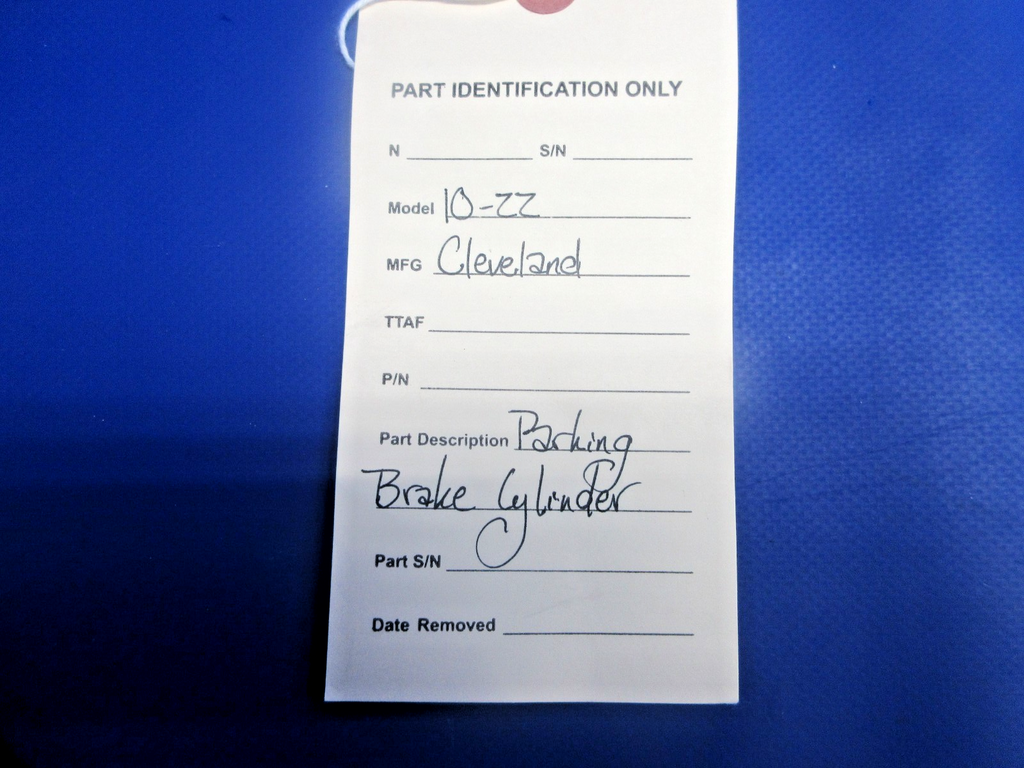 PART IDENTIFICATION ONLY
N ____________ S/N ____________
Model 10-22
MFG Cleveland
TTAF ____________
P/N ____________
Part Description Parking
Brake Cylinder
Part S/N ____________
Date Removed ____________